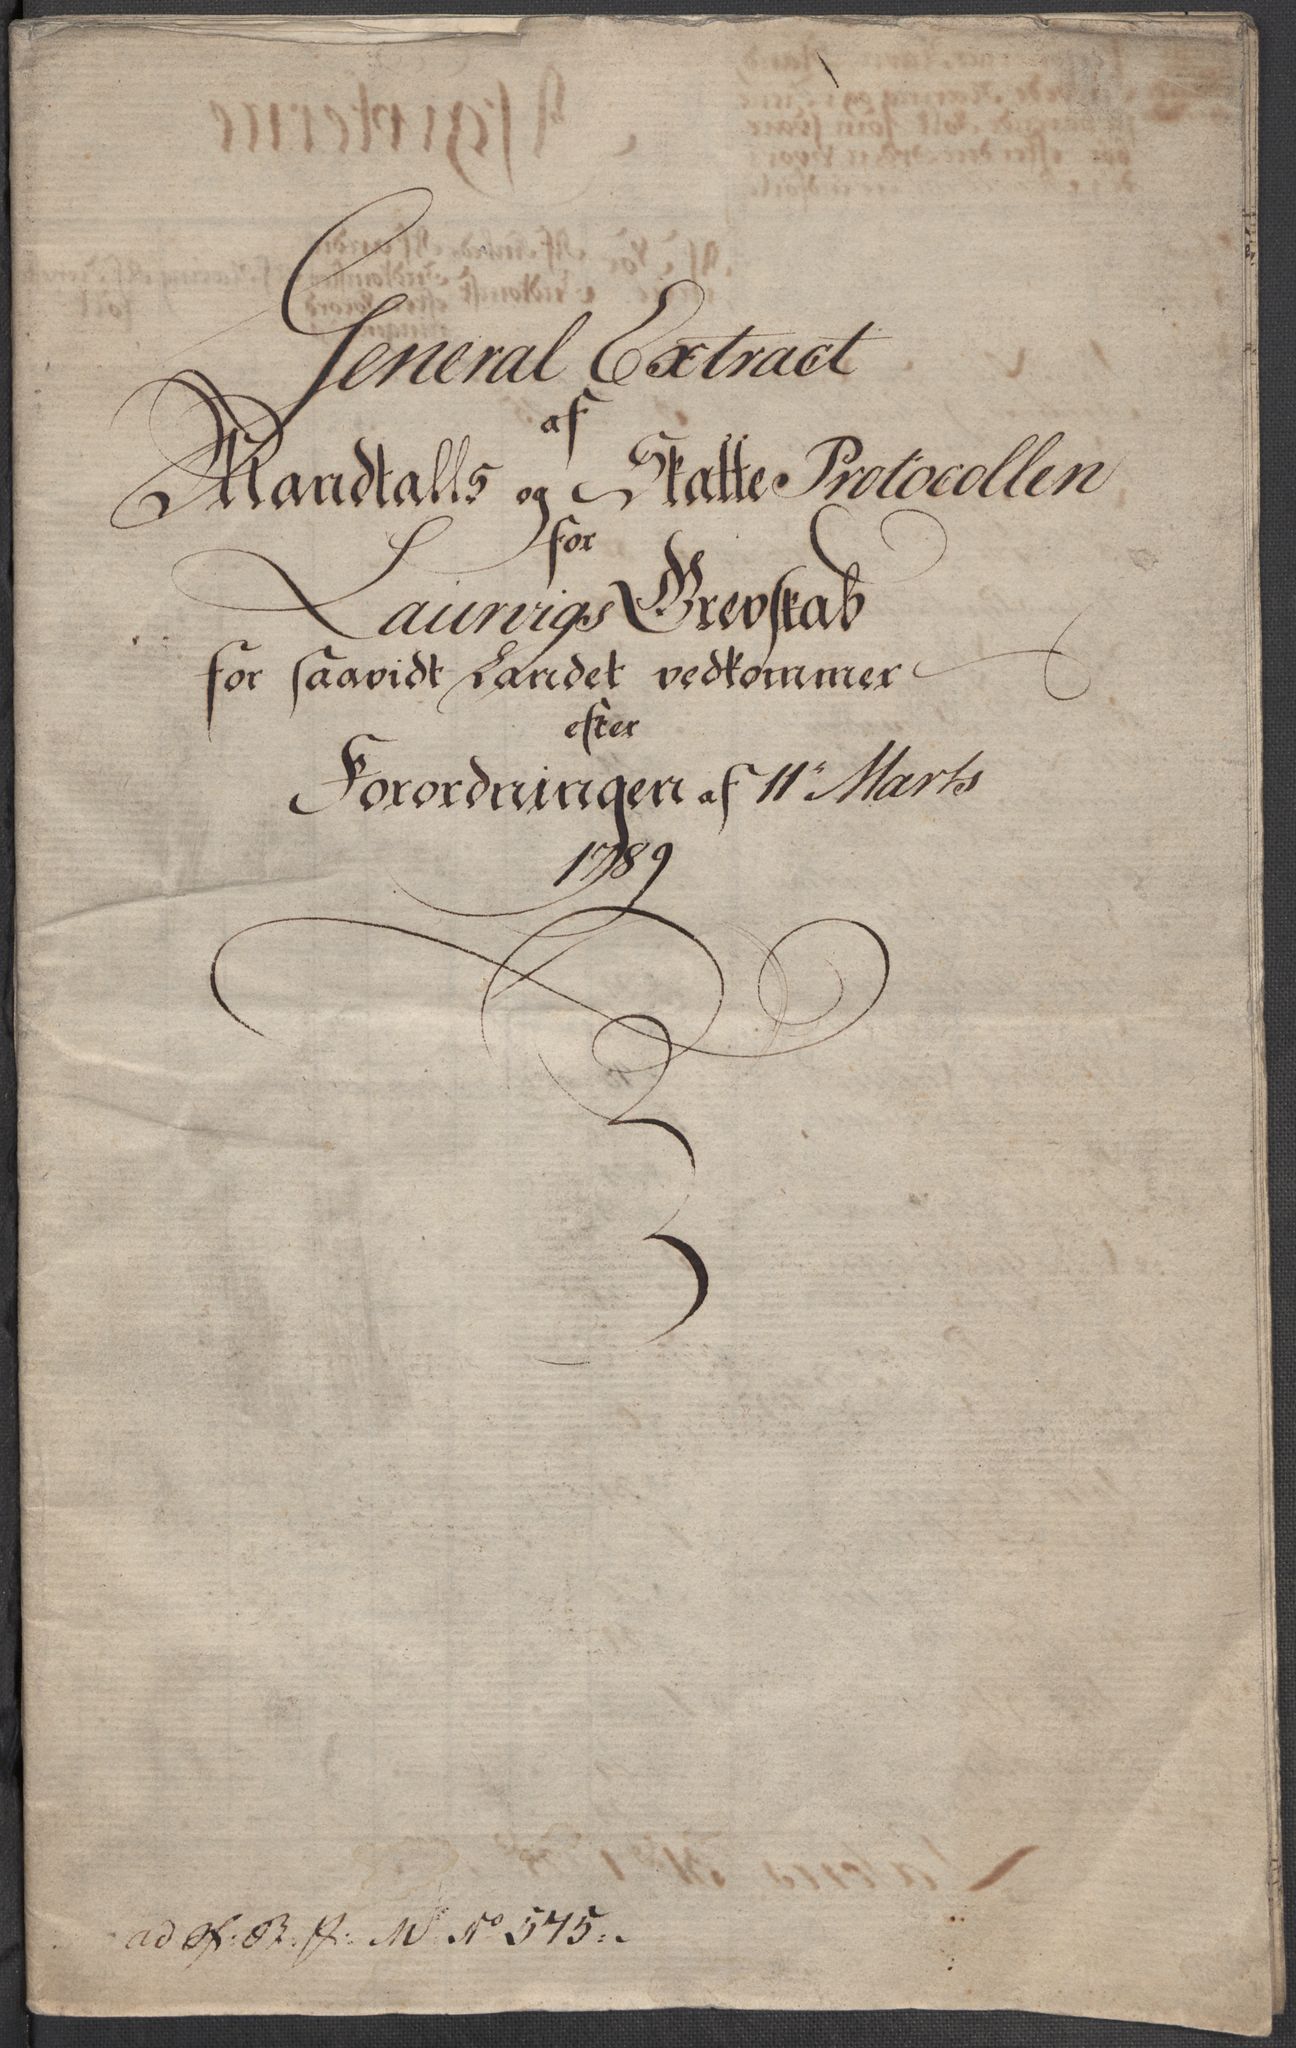 General Extract
af
Mandtalls og Skatte Protocollen
for
Laurvigs Grevskab
for saavidt Landet vedkommer
efter
Forordningen af 11te Marts
1789
ad No 575